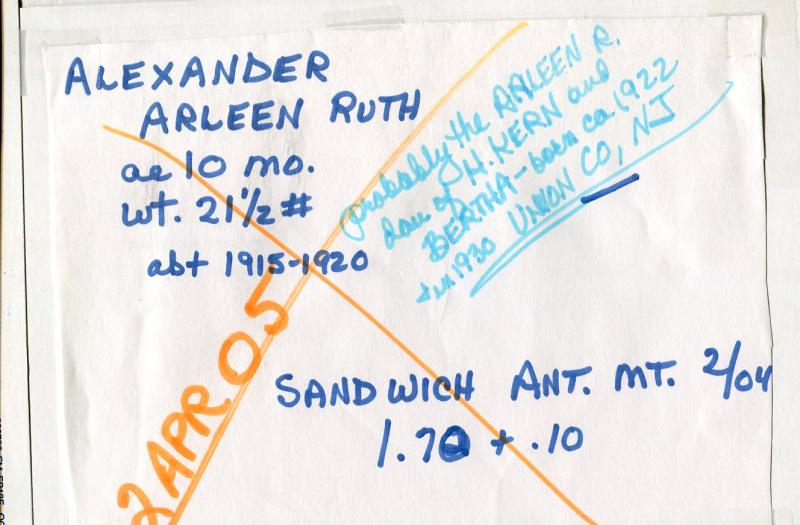 ALEXANDER
ARLEEN RUTH
ae 10 mo.
wt. 21 1/2 #
abt 1915-1920
probably the ARLEEN R.
dau of H. KERN and
BERTHA - born ca 1922
in 1930 UNION CO, NJ
2 APR 05
SANDWICH ANT. MT. 2/04
1.70 + .10